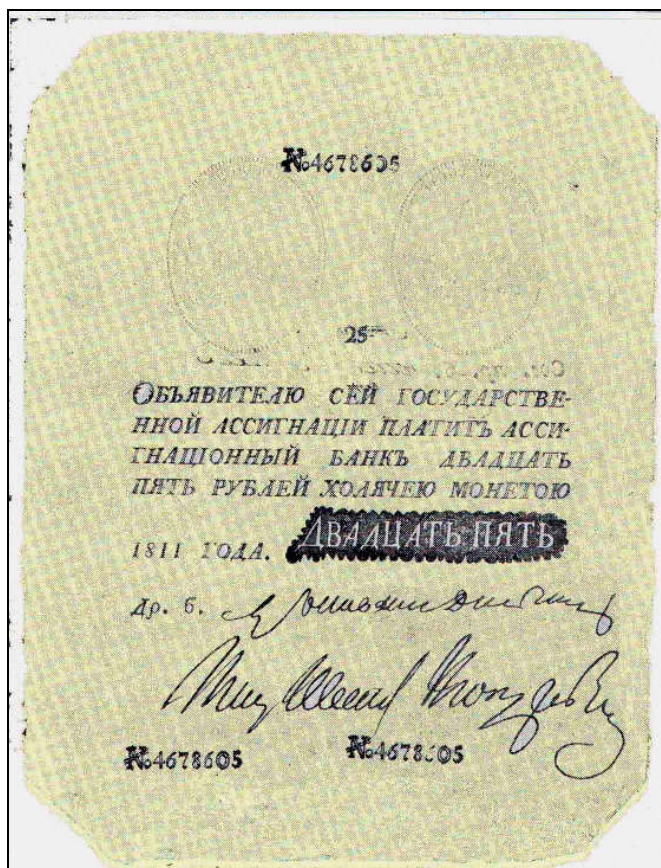 №4678605
25
ОБЪЯВИТЕЛЮ СЕЙ ГОСУДАРСТВЕ-
ННОЙ АССИГНАЦIИ ПЛАТИТЪ АССИ-
ГНАЦIОННЫЙ БАНКЪ ДВАДЦАТЬ
ПЯТЬ РУБЛЕЙ ХОЛЯЧЕЮ МОНЕТОЮ
1811 ГОДА. ДВАДЦАТЬ ПЯТЬ
др. б.
№4678605 №4678605